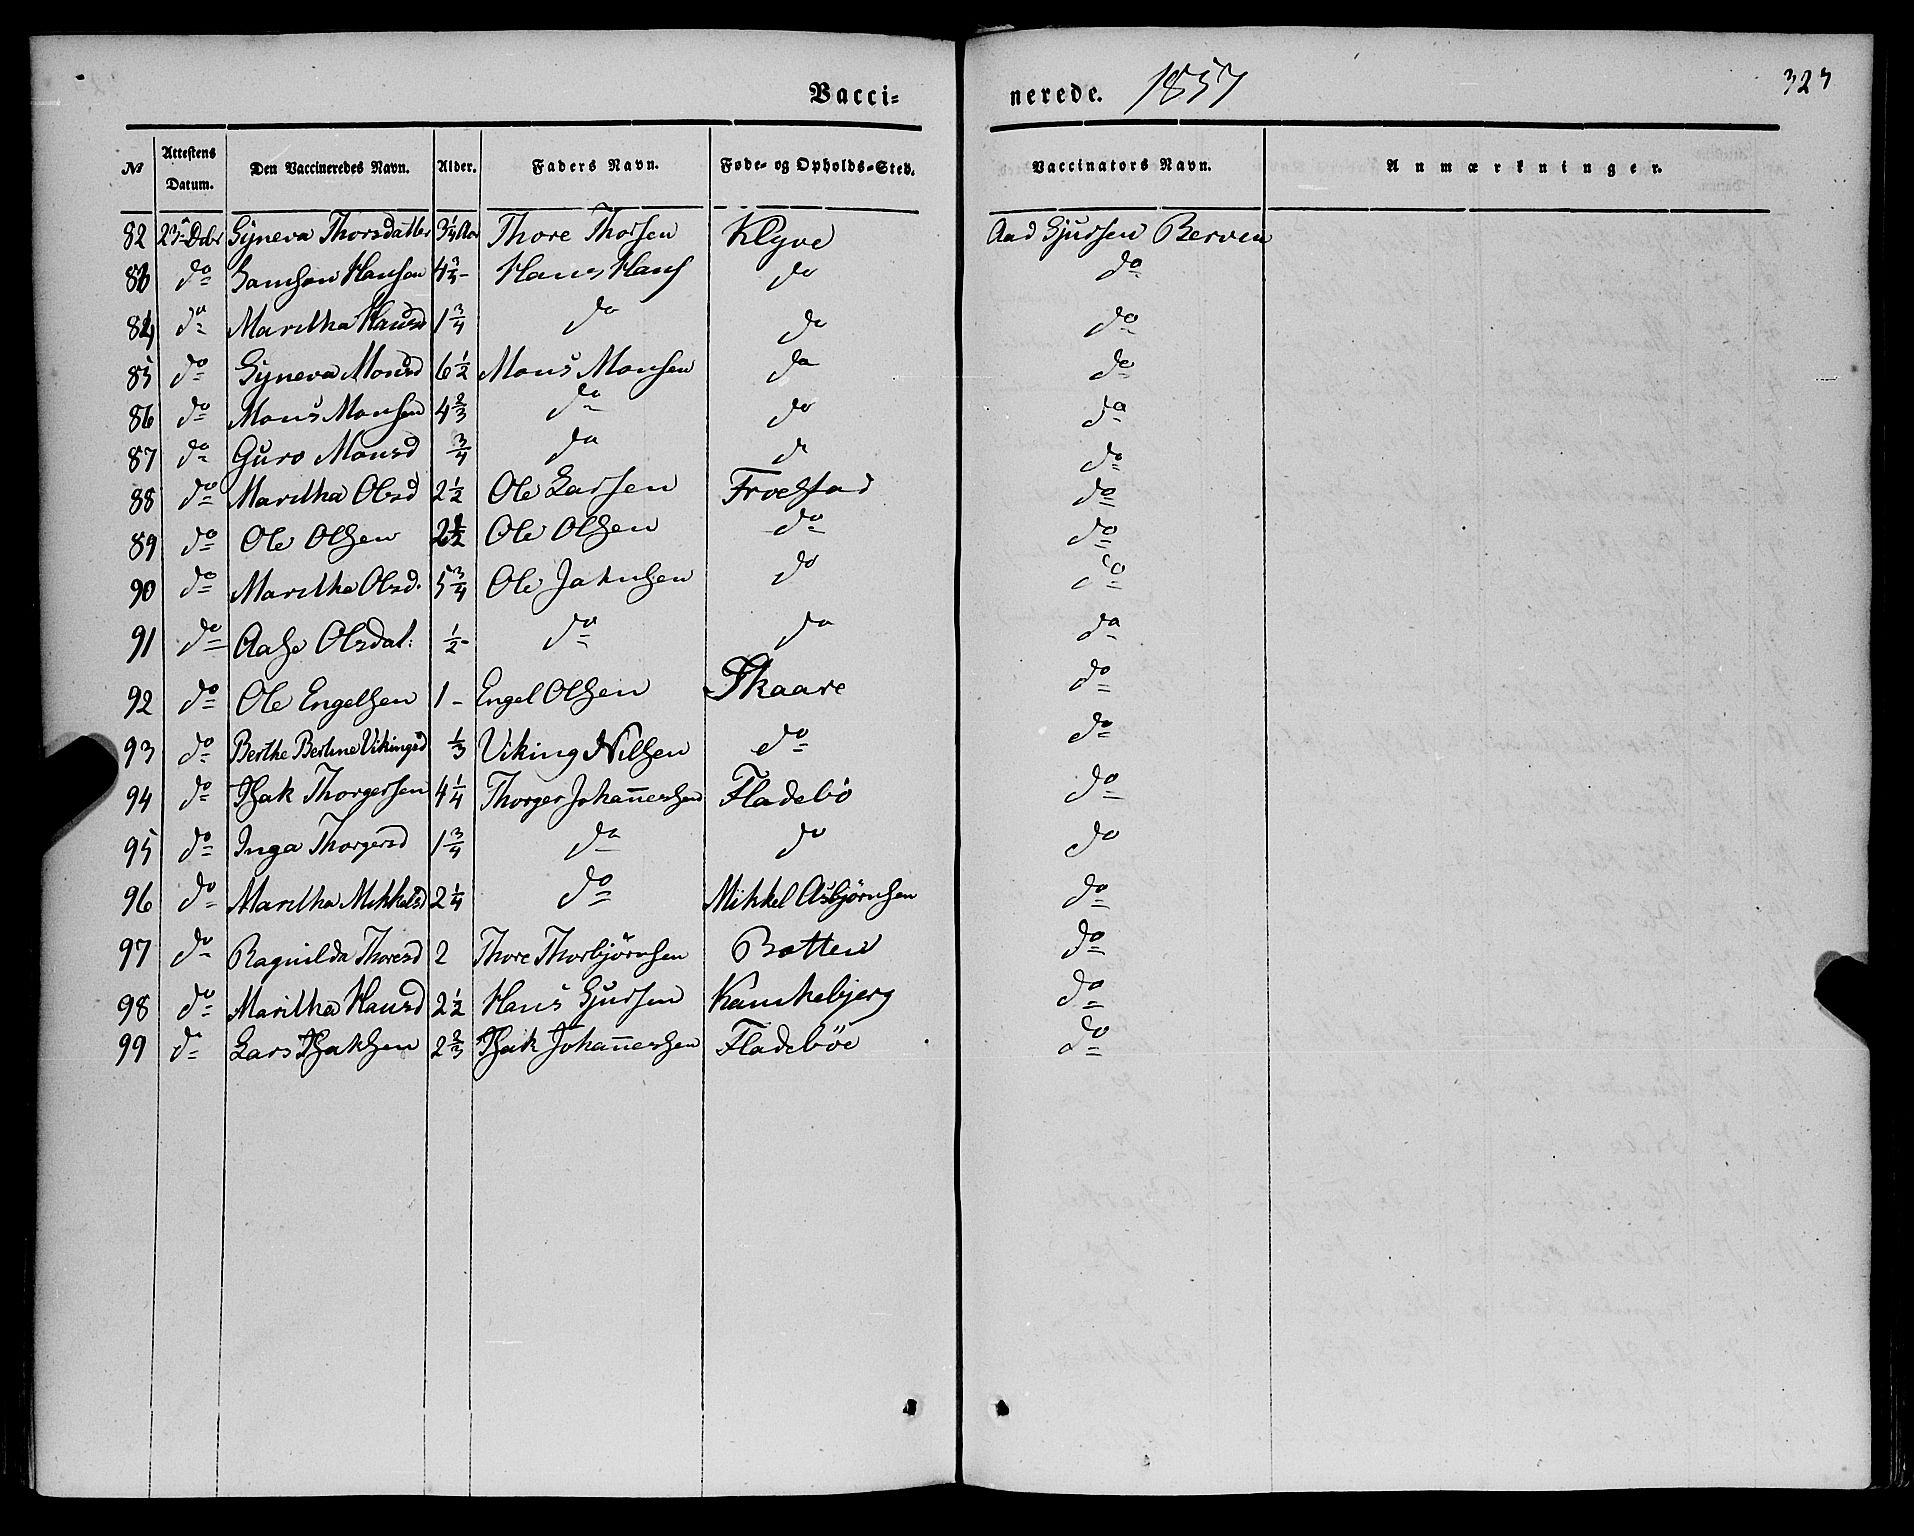 Vacci- nerede. 1857 323
No Attestens Datum. Den Vaccineredes Navn. Alder. Faders Navn. Føde- og Opholds-Sted. Vaccinators Navn. Anmærkninger.
82 23 Dcbr Syneva Thorsdatter 3 1/4 Thore Thorsen Klyve Aad Gjursen Berven
83 do Samson Hansen 4 Hans Hans do do
84 do Maritha Hansd 1 3/4 do do do
85 do Syneva Monsd 6 1/2 Mons Monsen do do
86 do Mons Monsen 4 2/3 do do do
87 do Guro Monsd 3/4 do do do
88 do Maritha Olsd 2 1/2 Ole Larsen Froestad do
89 do Ole Olsen 2 1/2 Ole Olsen do do
90 do Maritha Olsd. 5 3/4 Ole Jakusen do do
91 do Aase Olsdat: 1/2 - do do do
92 do Ole Engelsen 1 - Engel Olsen Skaare do
93 do Berthe Berthine Vikingsd 1/3 Viking Nilsen do do
94 do Isak Thorgersen 4 1/4 Thorger Johannessen Fladebö do
95 do Inga Thorgersd 1 3/4 do do do
96 do Maritha Mikkelsd 2 1/4 do Mikkel Asbjörnsen do
97 do Ragnilda Thoresd 2 Thore Thorbjörnsen Botten do
98 do Maritha Hansd 2 1/2 Hans Gjursen Kankebjerg do
99 do Lars Isaksen 2 2/3 Isak Johannessen Fladeböe do